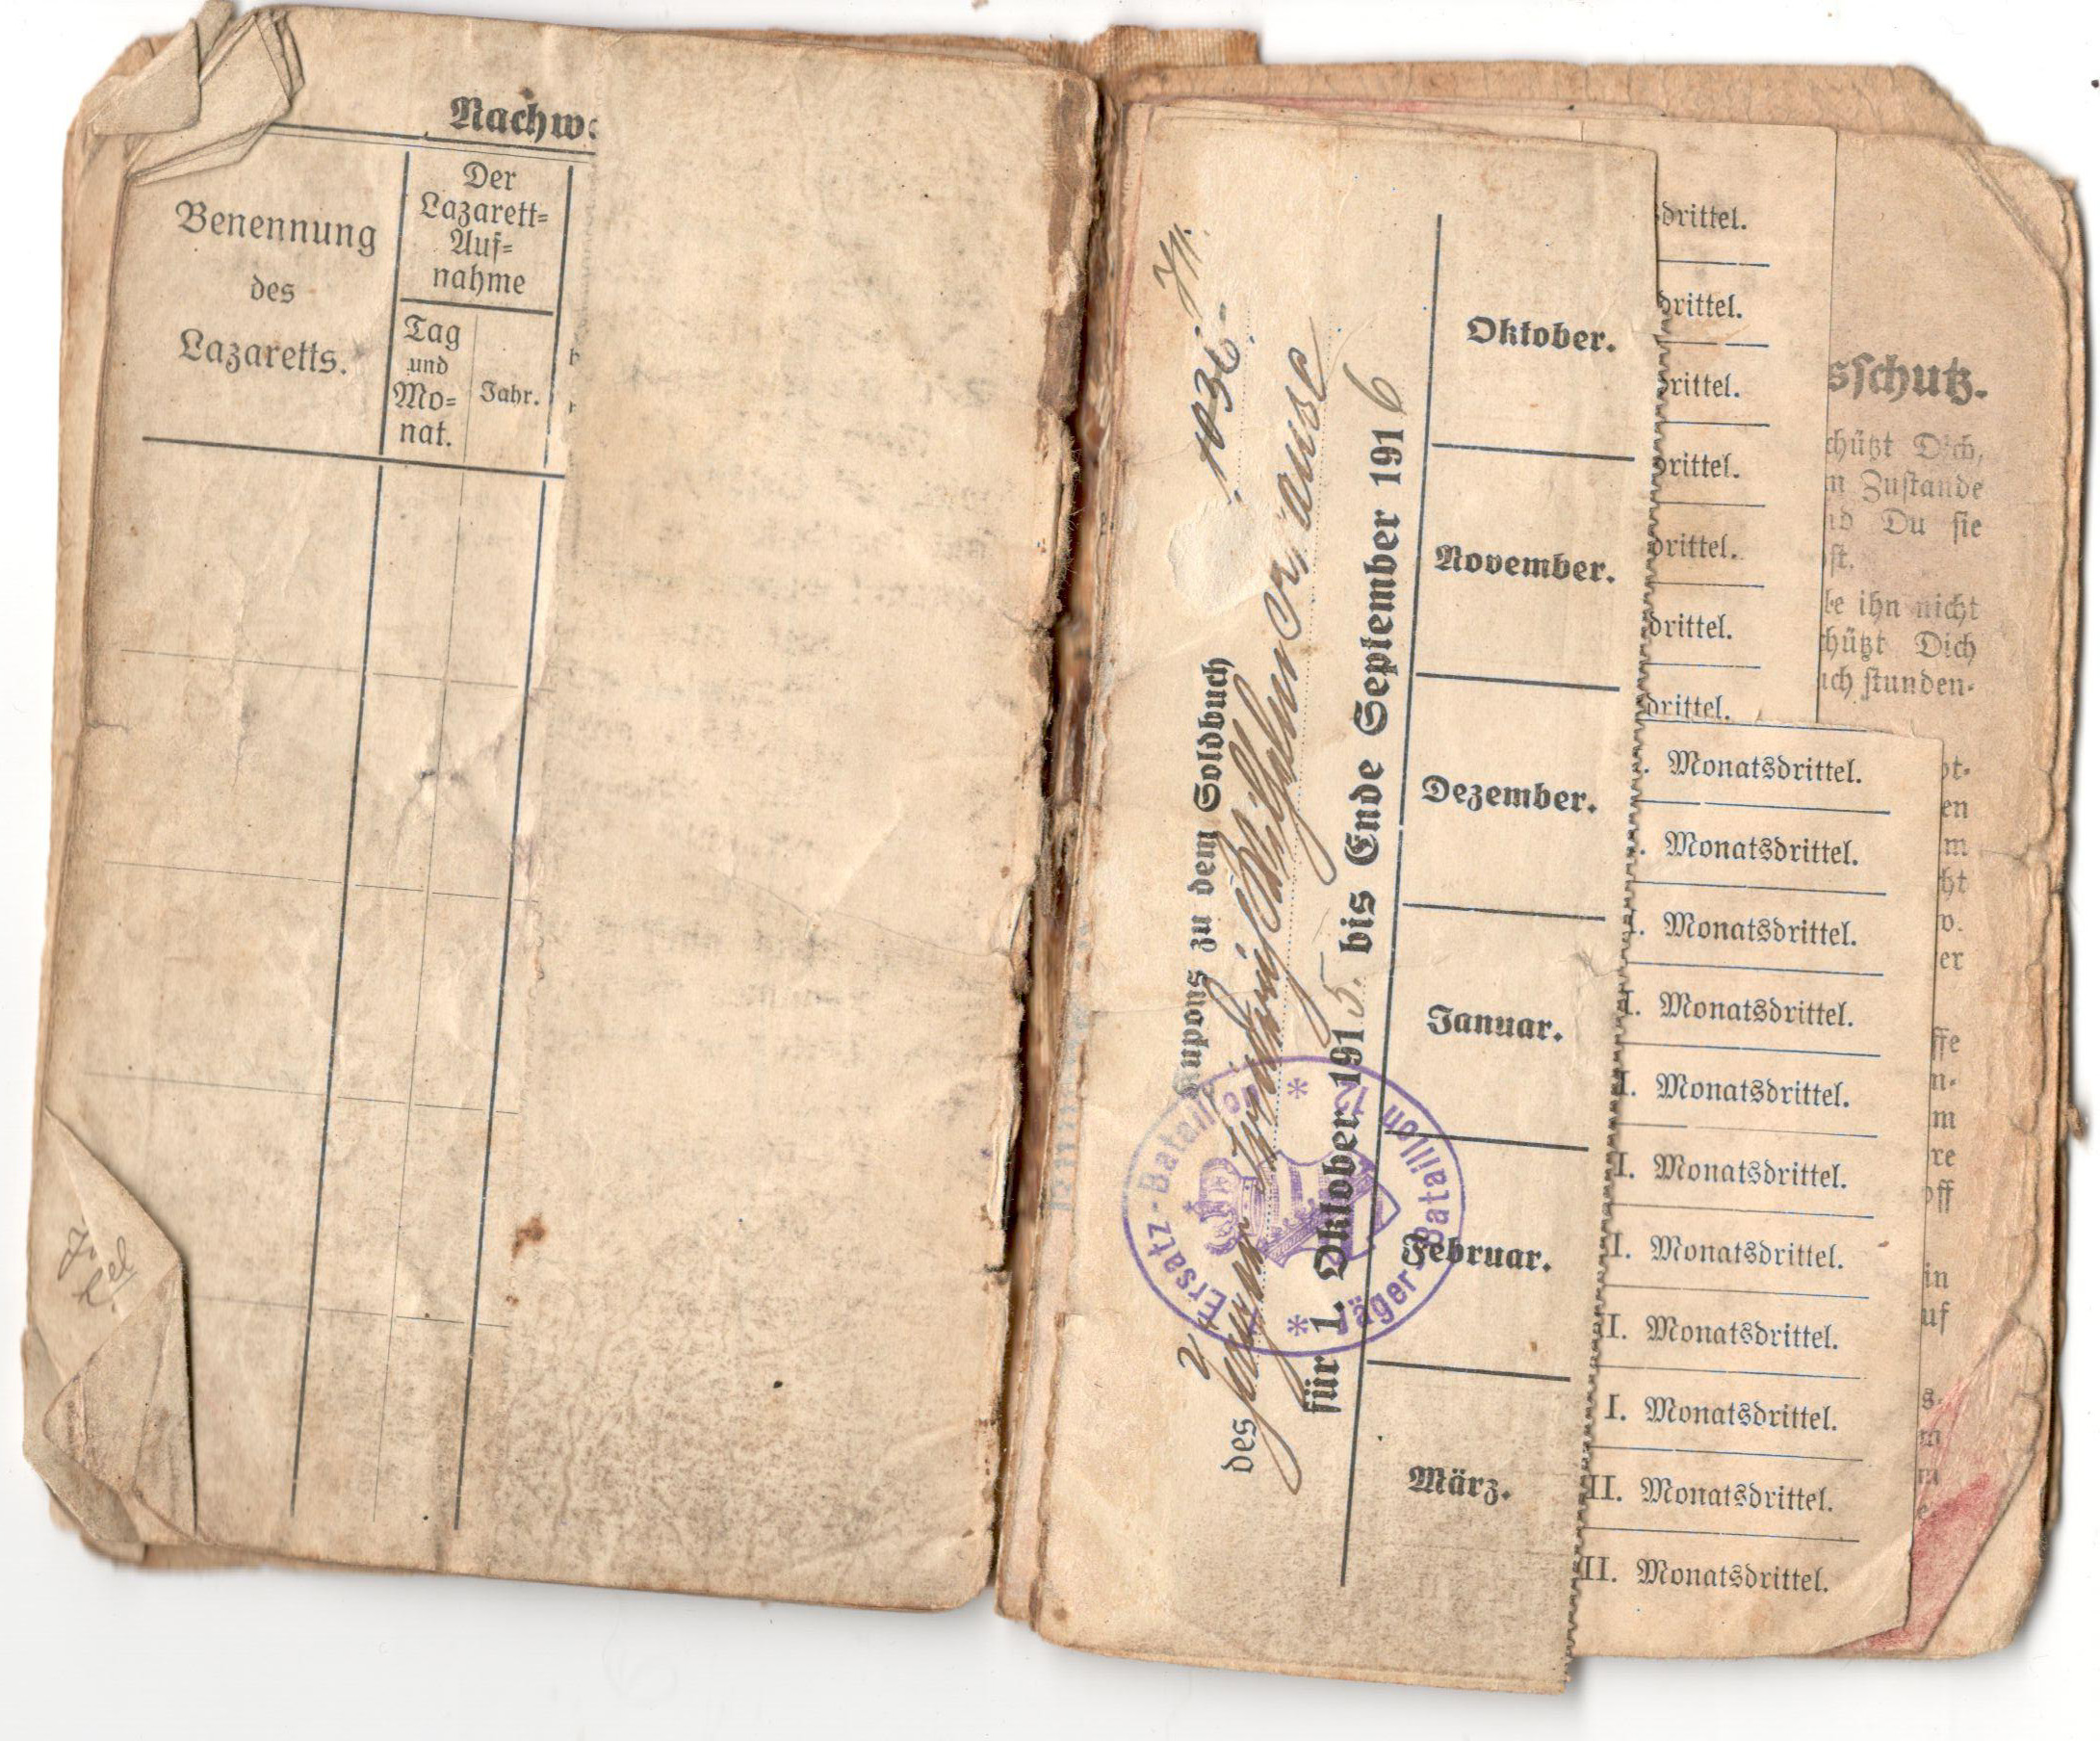 Nachw
Benennung
des
Lazaretts.
Der
Lazarett=
Auf=
nahme
Tag
und
Mo=
nat.
Jahr.
Kupons zu dem Soldbuch 1036.
des Jägers Wilhelm Krause
für 1. Oktober 1915 bis Ende September 1916
2. Ersatz-Bataillon
* Jäger-Bataillon *
Oktober.
November.
Dezember.
Januar.
Februar.
März.
drittel.
drittel.
drittel.
drittel.
drittel.
drittel.
drittel.
. Monatsdrittel.
. Monatsdrittel.
I. Monatsdrittel.
I. Monatsdrittel.
I. Monatsdrittel.
I. Monatsdrittel.
I. Monatsdrittel.
I. Monatsdrittel.
I. Monatsdrittel.
II. Monatsdrittel.
II. Monatsdrittel.
sschutz.
chützt Dich,
n Zustande
nd Du sie
st.
be ihn nicht
hützt Dich
uch stunden-
pt-
en
m
ht
v.
er
ffe
n-
m
re
off
in
uf
s-
m
m
e